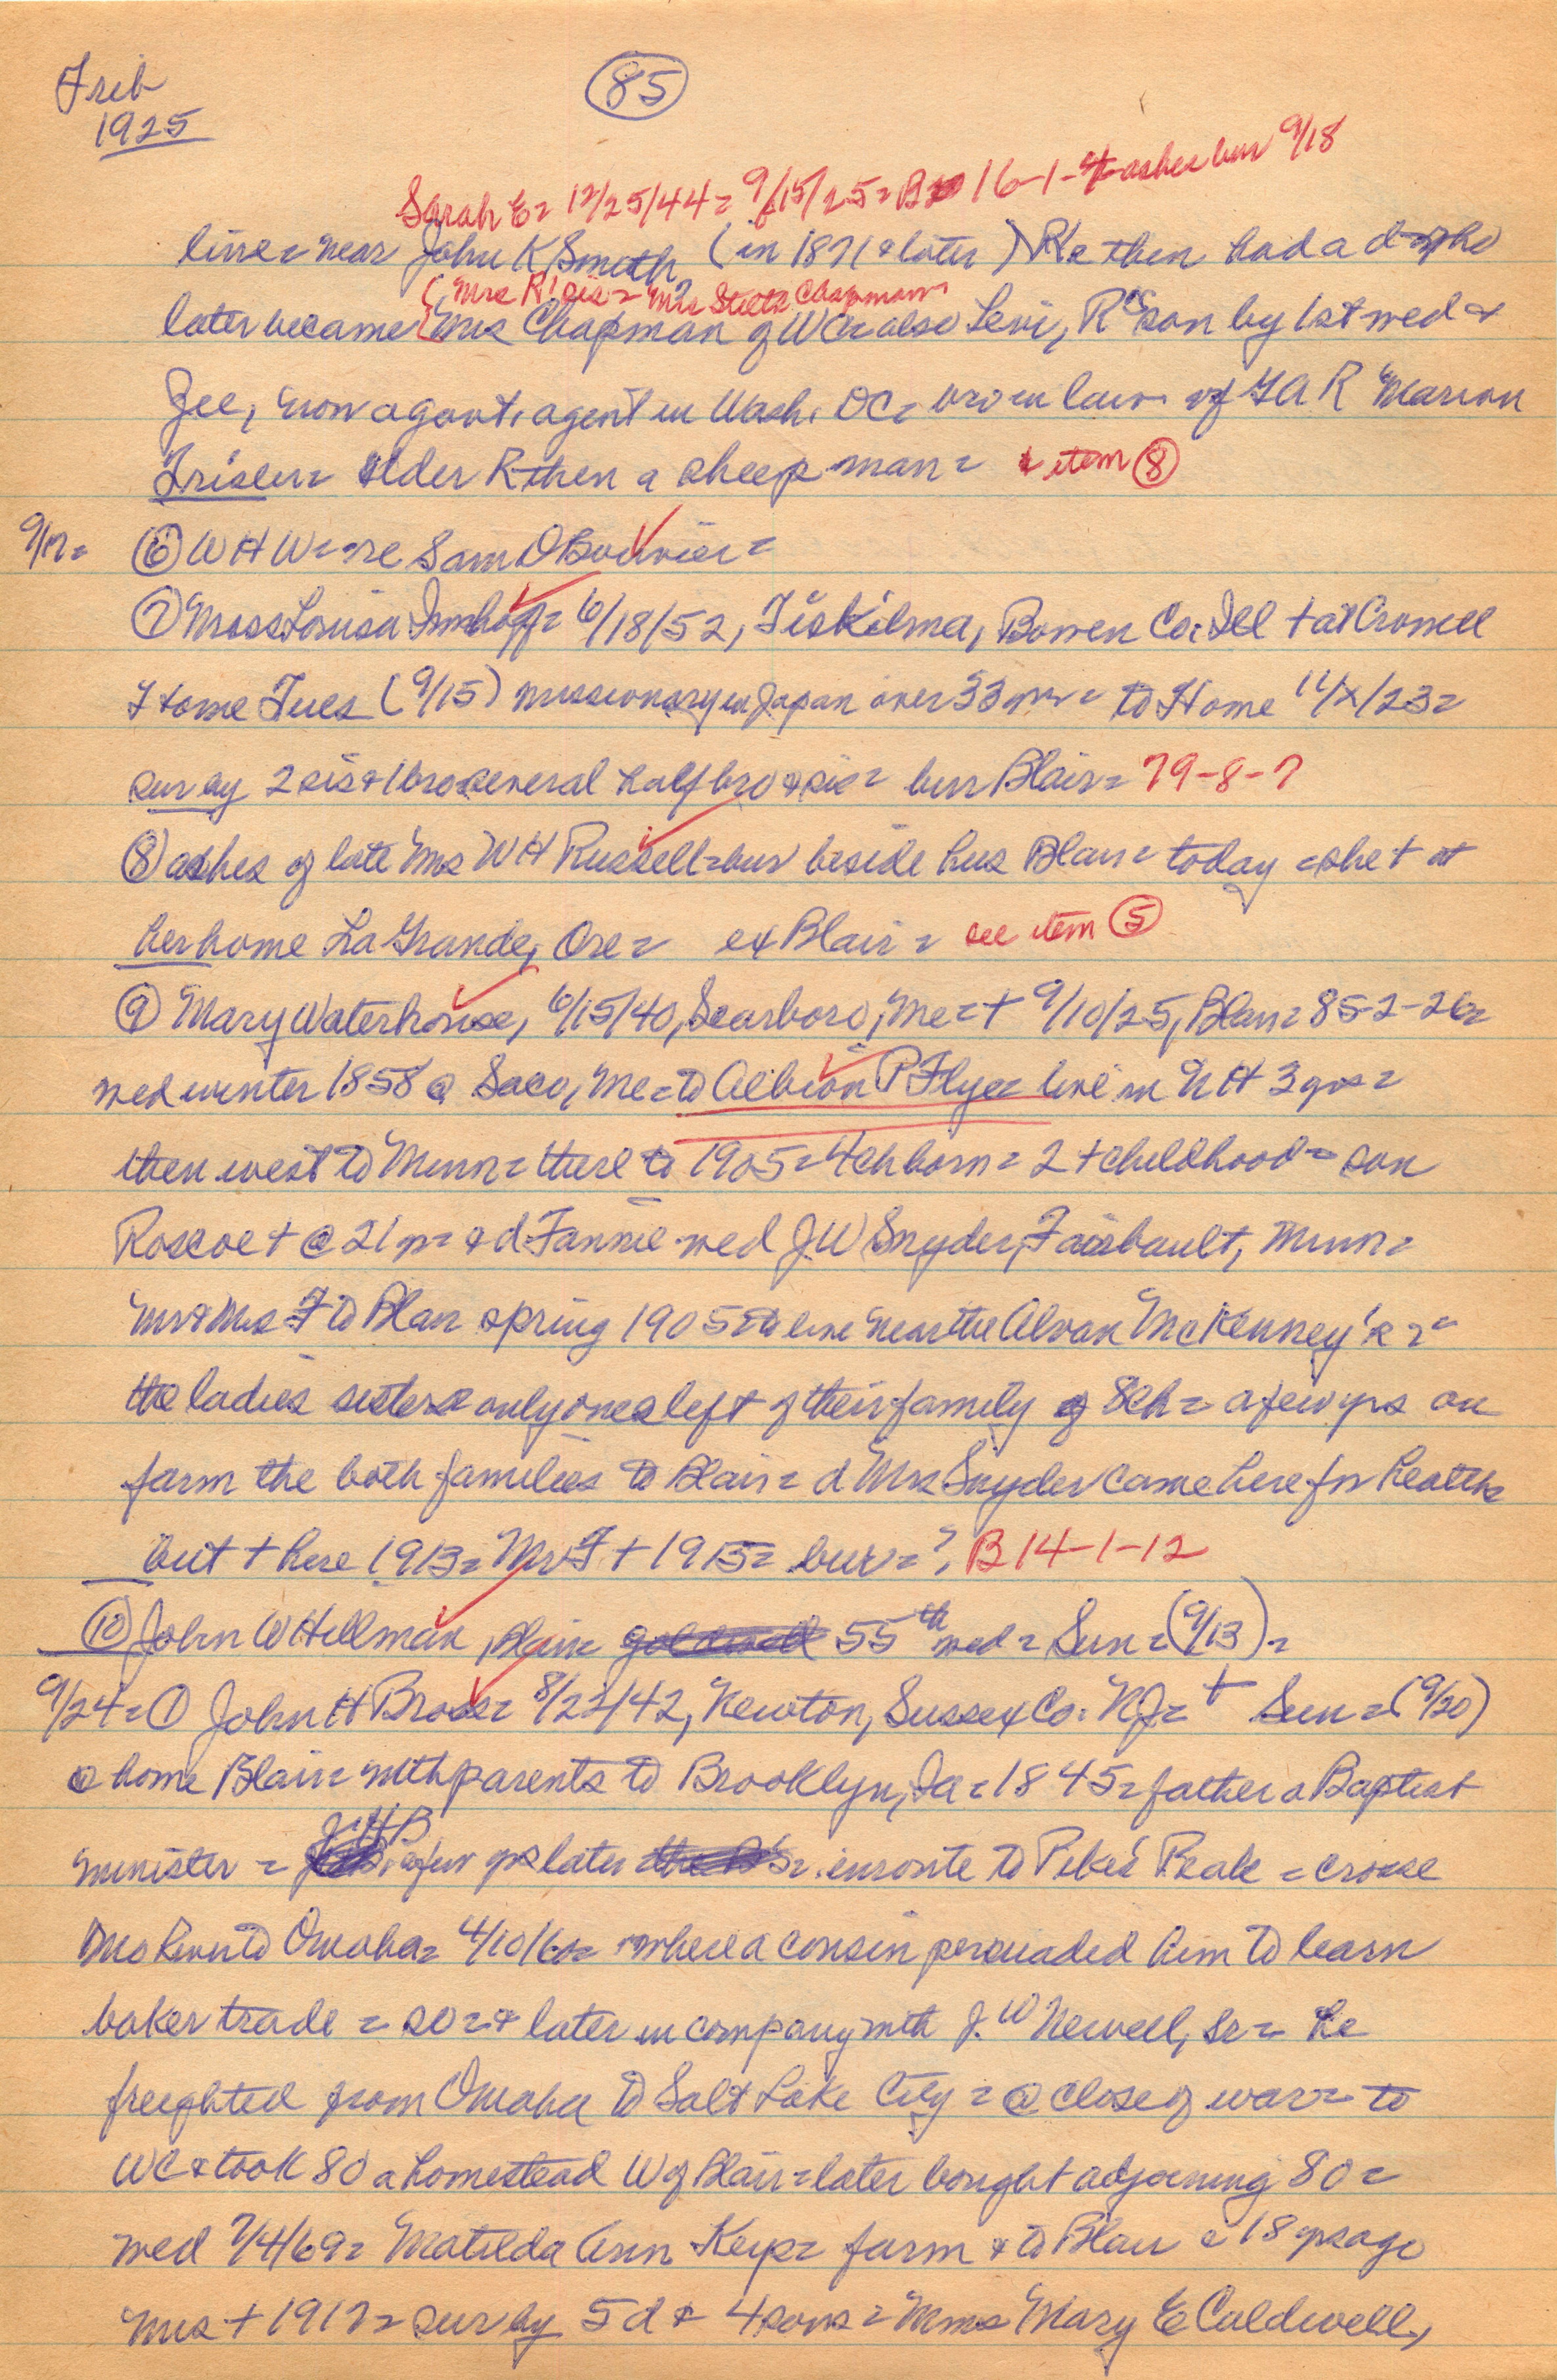 Trib
1925
85
Sarah E= 12/25/44= 9/15/25= B 16-1-4 ashes bur 9/18
line= near John K Smith (in 1871 & later) R's then had a d who
(Mrs R's sis = Mrs Chapman
later became Mrs Chapman of WC= also Levi, R's son by 1st wed &
Gee, now a govt. agent in Wash. DC= bro in law of GAR Marion
older R then a sheep man= item 8
9/17= 6 WHW= re Sam D Bouvier=
7 Miss Louisa Imhoff= 6/18/52, Tiskilma, Bowen Co. Ill + at Crowell
Home Tues (9/15) missionary in Japan over 33 yrs= to Home 11/X/23=
sur by 2 sis & 1 bro several half bro & sis= bur Blair= 79-8-7
8 ashes of late Mrs WH Russell= bur beside hus Blair= today = she + at
her home La Grande, Ore= ex Blair= see item 5
9 Mary Waterhouse, 6/15/40, Scarboro, Me=+ 9/10/25, Blair= 85-2-26=
wed winter 1858 @ Saco, Me= to Albion P Flye= live in NH 3 yrs=
then west to Minn= there to 1905= 4 ch born= 2 + childhood= son
Roscoe + @ 21 yr= & d Fannie wed JW Snyder, Faribault, Minn=
Mr & Mrs F to Blair spring 1905= to live near the Alvan McKenney's =
the ladies sisters= only ones left of their family of 8 ch= a few yrs on
farm the both families to Blair= d Mrs Snyder came here for health
but + here 1913= Mr F + 1915= bur=? B 14-1-12
10 John W Hillman, Blair= 55th wed= Sun=(9/13)=
9/24= 1 John H Bross= 8/22/42, Newton, Sussex Co. NJ= + Sun=(9/20)
@ home Blair= with parents to Brooklyn, Ia= 1845= father a Baptist
minister = JHB a few yrs later enroute to Pikes Peak = cross
Mo River to Omaha= 4/10/60= where a cousin persuaded him to learn
baker trade = so= & later in company with J.W Newell, sr= he
freighted from Omaha to Salt Lake City= @ close of war= to
WC & took 80 a homestead W of Blair= later bought adjoining 80=
wed 7/4/69= Matilda Ann Keys= farm & to Blair = 18 yrs ago
Mrs + 1917= sur by 5 d & 4 sons= Mms Mary E Caldwell,